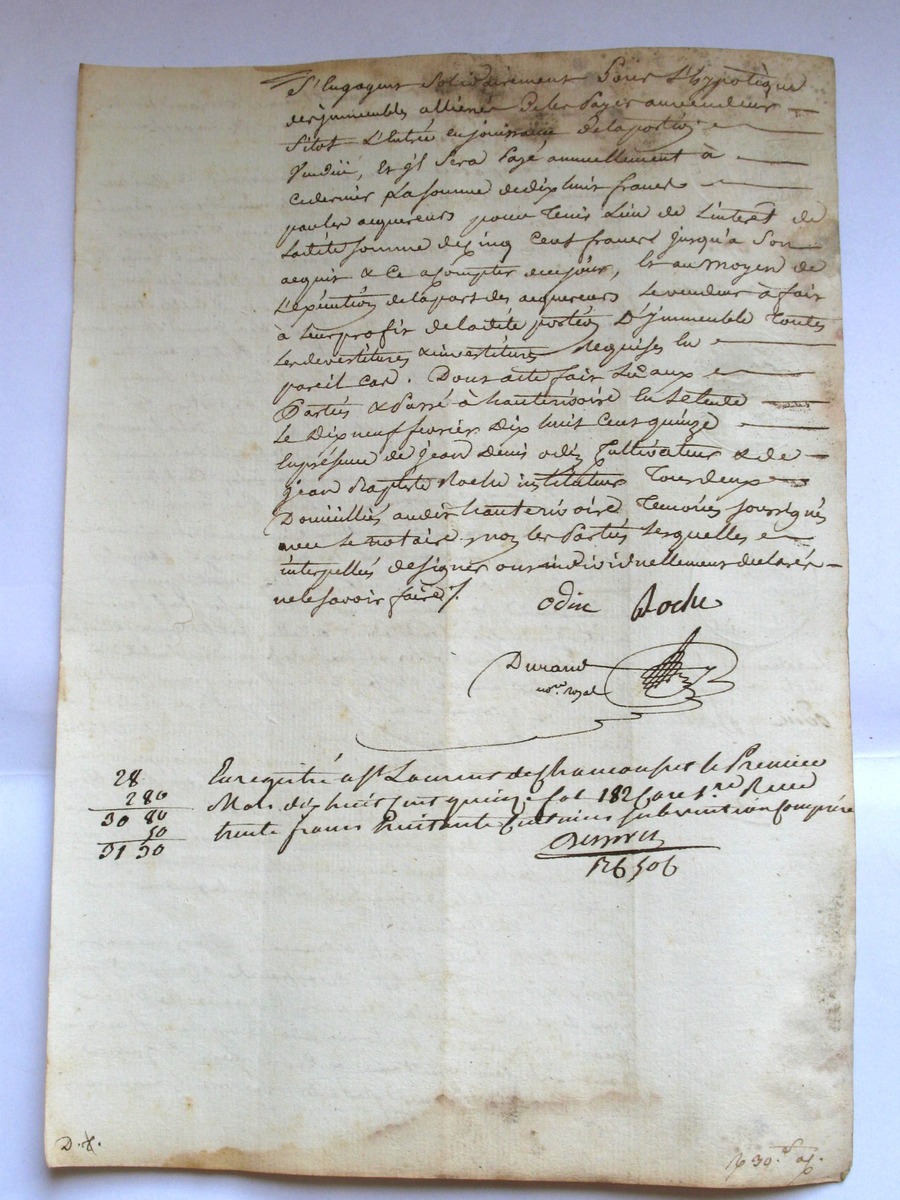 S'Engagent Solidairement Sous L'hypoteque
des jmmeubles alliénés De les Payer au vendeur
Sitot L'Entrée en jouissance De la portion
Vendüe, Et jl Sera Payé annuellement à
ce dernier La Somme de dix huit francs
par les acquereurs pour Tenir Lieu de L'interet de
Ladite Somme de Cinq Cent francs jusqu'a Son
acquit & Ce a Compter de ce jour, Et au moyen de
L'exécution de la part des acquereurs Le vendeur a fait
à Leur profit de Ladite portion D'jmmeuble Toutes
Les devestitures & investitures Requises En
pareil cas. Dont acte fait Lu aux
Parties & Passé à hauterivoire En Letude
Le Dix neuf fevrier Dix huit Cent quinze
En présence de jean Denis odin Cultivateur & de
jean Baptiste Roche instituteur Tous deux
Domiciliés audit hauterivoire Temoins soussignés
avec Le notaire, non les Parties Lesquelles
interpellées de signer ont individuellement déclaré
ne le Savoir faire ./.
odin Roche
Durand
nore royal
28 Enregistré a St Laurent de Chamousset le Premier
2 80 Mars dix huit cent quinze fol 182 Case 1re Reçu
30 80 trente francs quatre vingt Centimes subvention Comprise
50
31 30
126 506
D. &.